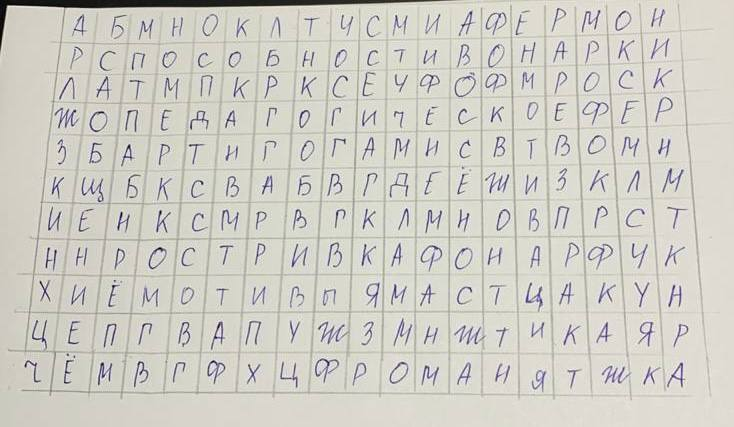 А Б М Н О К Л Т Ч С М И А Ф Е Р М О Н
Р С П О С О Б Н О С Т И В О Н А Р К И
Л А Т М П К Р К С Е Ч Ф О Ф М Р О С К
Ж О П Е Д А Г О Г И Ч Е С К О Е Ф Е Р
З Б А Р Т Н Г О Г А М Н С В Т В О М Н
К Щ Б К С В А Б В Г Д Е Ё Ж И З К Л М
И Е Н К С М Р В Г К Л М Н О В П Р С Т
Н Н Р О С Т Р И В К А Ф О Н А Р Ф Ч К
Х И Ё М О Т И В Ы Я М А С Т Ц А К У Н
Ц Е П Г В А П У Ж З М Н Ж Т И К А Я Р
Ч Ё М В Г Ф Х Ц Ф Р О М А Н Я Т Ж К А